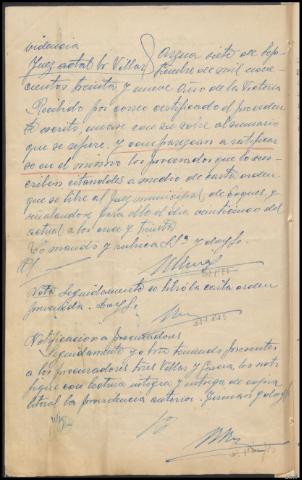 videncia
Juez actal Sr. Villar Azpna siete de sep-
tiembre de mil nove
cientos treinta y nueve Año de la Victoria
Recibido por correo certificado el preceden
te escrito, unase con su sobre al sumario
que se refiere, y comparezcan a ratificar
se en el mismo los procesados que lo sus-
criben citandoles a medio de carta orden
que se libre al Juez municipal de
señalandose para ello el dia veintiuno del
actual a las once y treinta
Lo mando y rubrica Sª. y doy fe.
Nota. Seguidamente se libró la carta orden
prevenida. Doy fe.
Notificacion a procuradores
Seguidamente y yo teniendo presentes
a los procuradores Villar y les noti
fique con lectura integra y entrega de copia
literal la providencia anterior. Firman y doy fe